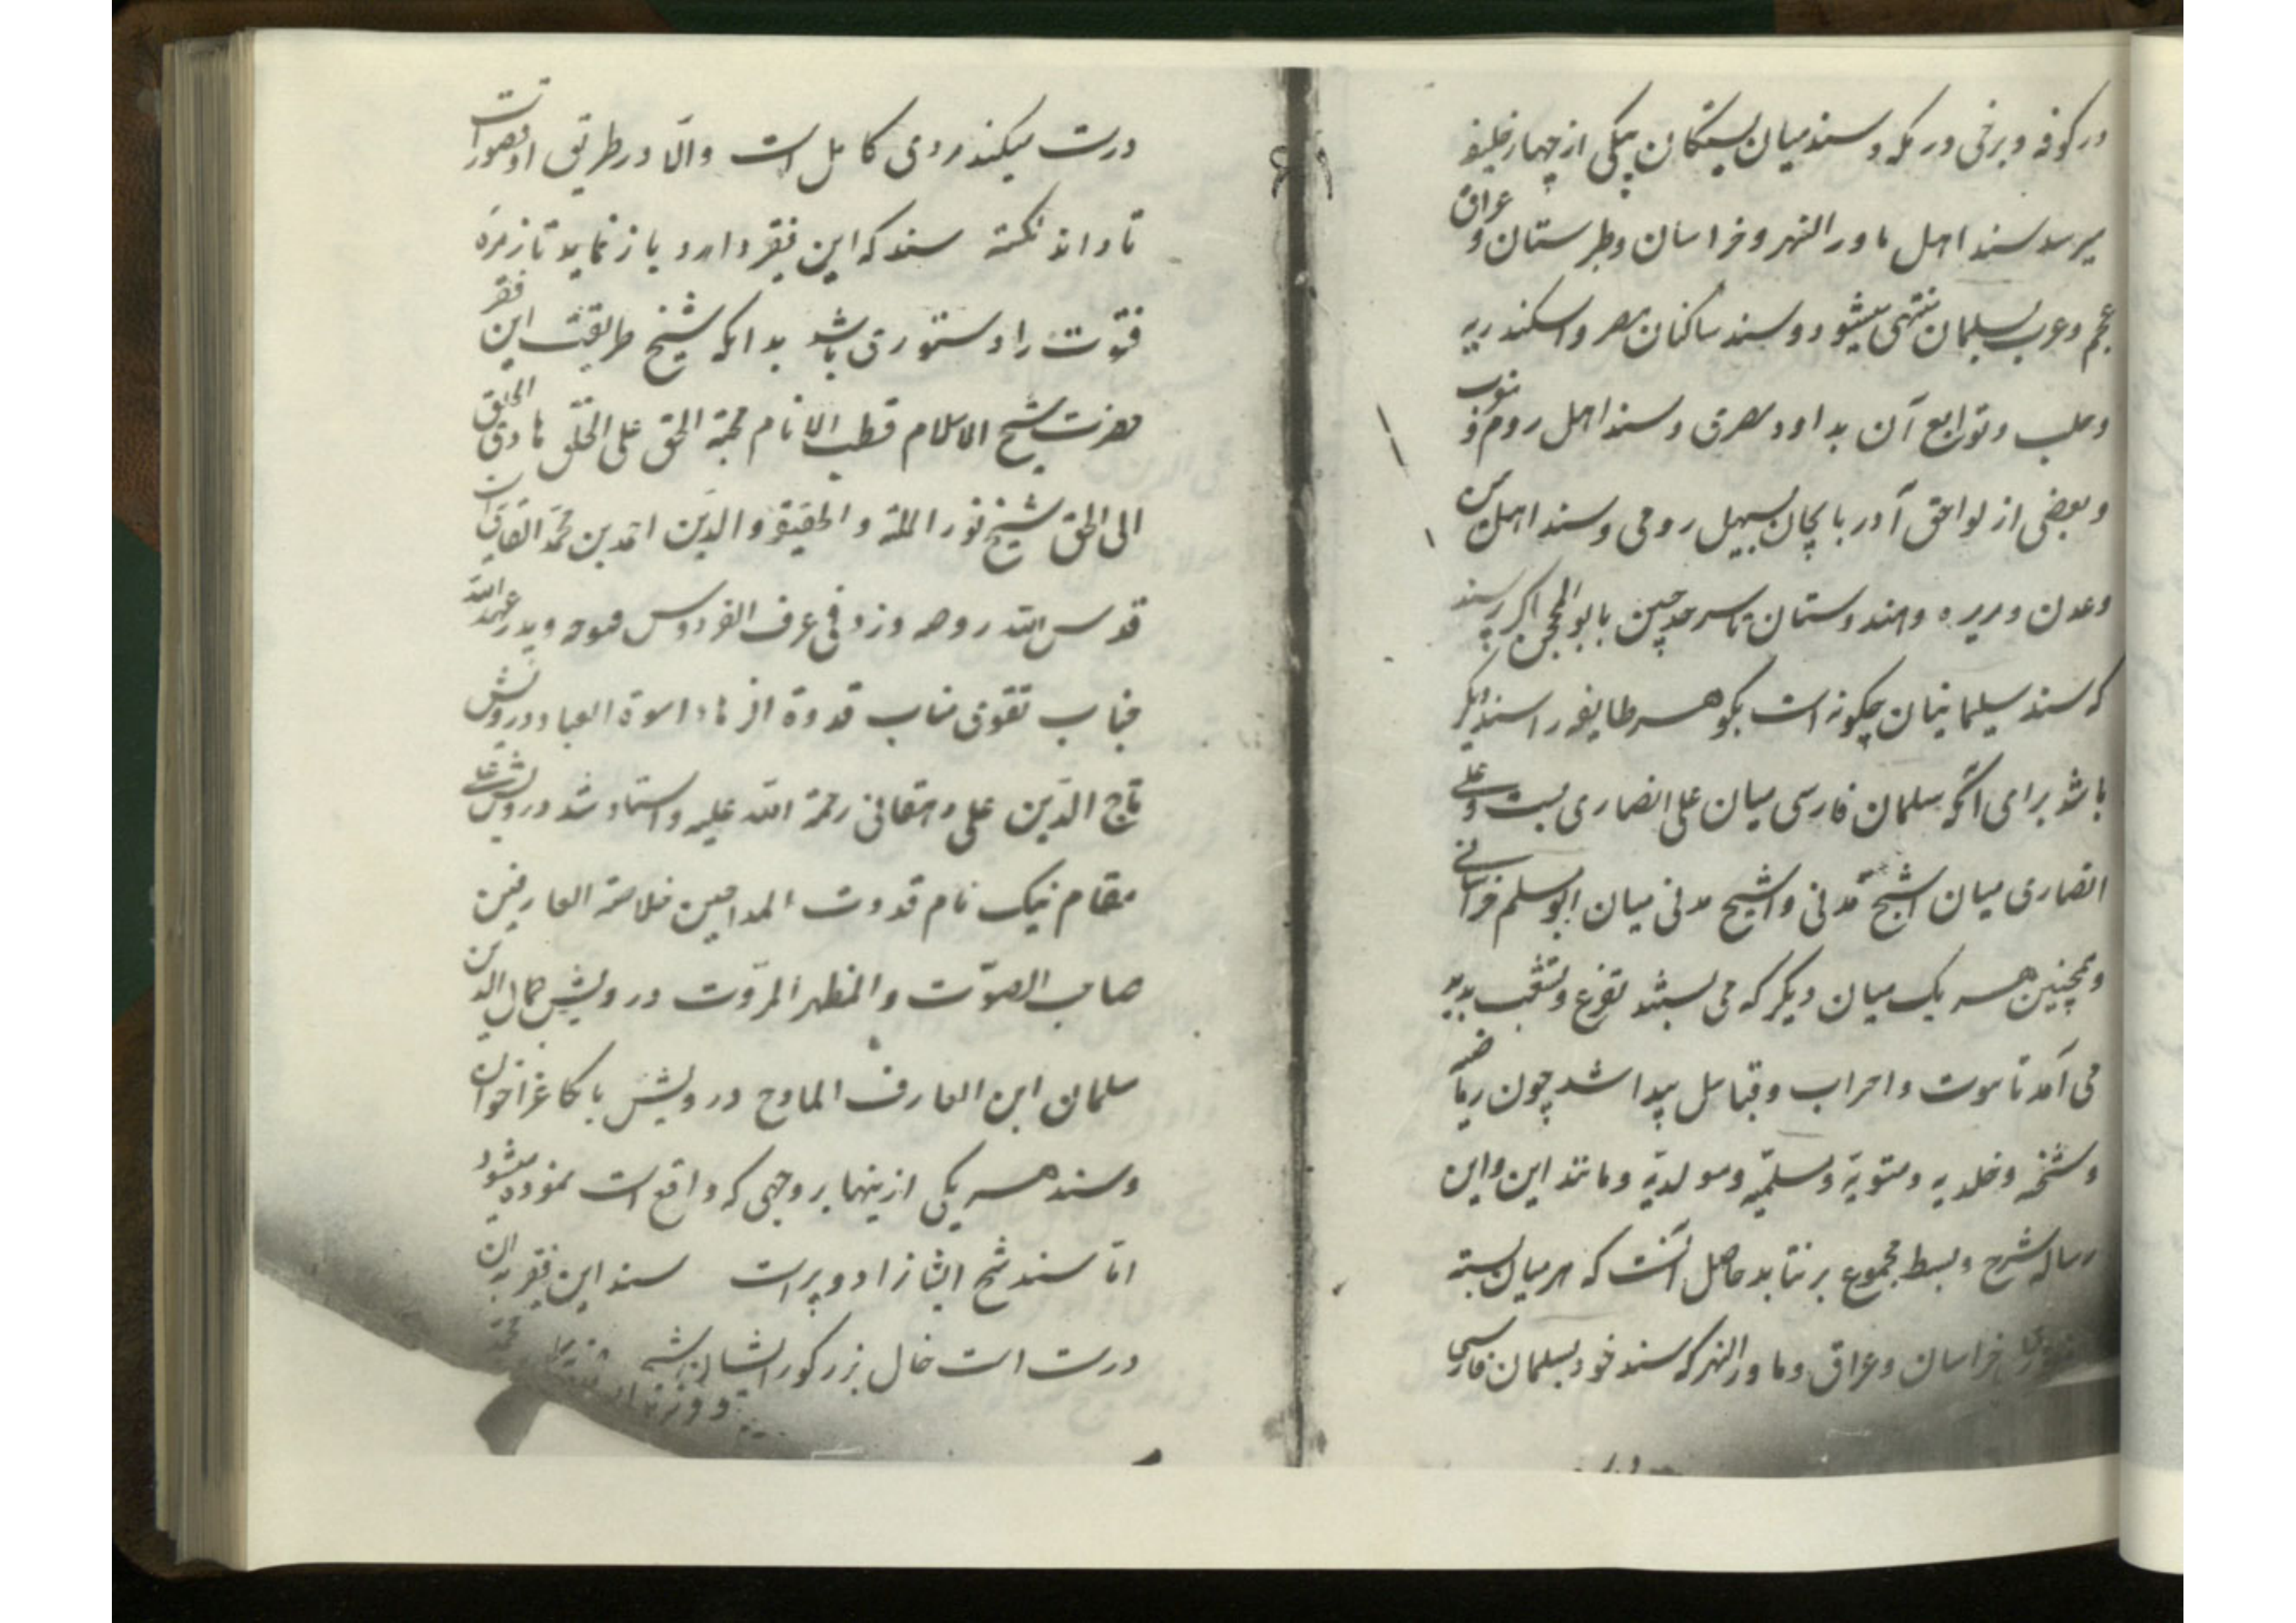 در کوفه و برخی در مکه و سند میان بستگان بیکی از چهار خلیفه
میرسد سند اهل ماورالنهر و خراسان و طبرستان و عراق
عجم و عرب بسلمان منتهی میشود و سند ساکنان مصر و اسکندریه
و حلب و توابع آن بداود مصری و سند اهل روم و
و بعضی از لواحق آدربایجان بسهیل رومی و سند اهل یمن
و عدن و بربره و هندوستان تا سرحد چین بابوالمحجن اکر پرسند
که سند سلیمانیان چکونه است بکو هر طایفه را سند دیکر
باشد برای آنکه سلمان فارسی میان علی انصاری بست و علی
انصاری میان اشج مدنی و اشج مدنی میان ابومسلم خراسانی
و همچنین هر یک میان دیکر که می بستند تفرع و تشعب پدید
می آمد تا بیوت و احزاب و قبایل پیدا شد چون
و شخیه و خلدیه و متویه و مسلمیه و مولدیه و مانند این و این
رساله شرح و بسط مجموع برنتابد حاصل آنست که هر میان بسته
خراسان و عراق و ماورالنهر که سند خود بسلمان فارسی
درست میکند مردی کامل است والّا در طریق او قصورات
تا داند نکته سند که این فقیر دارد باز نماید تا زمره
فتوت را دستوری باشد بدانکه شیخ طریقت این فقیر
حضرت شیخ الاسلام قطب الانام حجة الحق علی الخلق هادی الخلق
الی الحق شیخ نور الملة و الحقیقة و الدین احمد بن محمد القاینی است
قدس الله روحه وزد فی غرف الفردوس فتوحه و پدر عهدالله
جناب تقوی مناب قدوة الزهاد اسوة العباد درویش
تاج الدین علی دهقانی رحمة الله علیه و استاد شد درویش علی
مقام نیک نام قدوت المداحین خلاصة العارفین
صاحب الصوّت و المظهر المروّت درویش جمال الدین
سلمان ابن العارف المادح درویش بابا کاغذ خوان
و سند هر یکی ازینها بر وجهی که واقع است نموده میشود
امّا سند شیخ ایشانرا دو پیر است سند این فقیر بدان
درست است خال بزرکوار ایشان شیخ